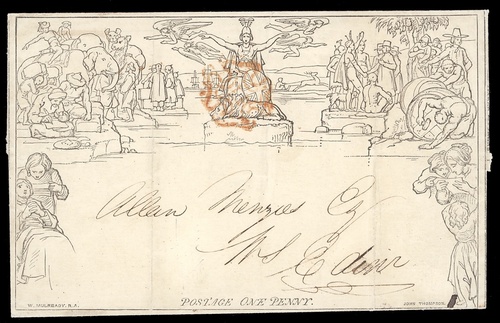 Allan Menzies Esq
W S Edinr
POSTAGE ONE PENNY.
W. MULREADY. R.A.
JOHN THOMPSON.